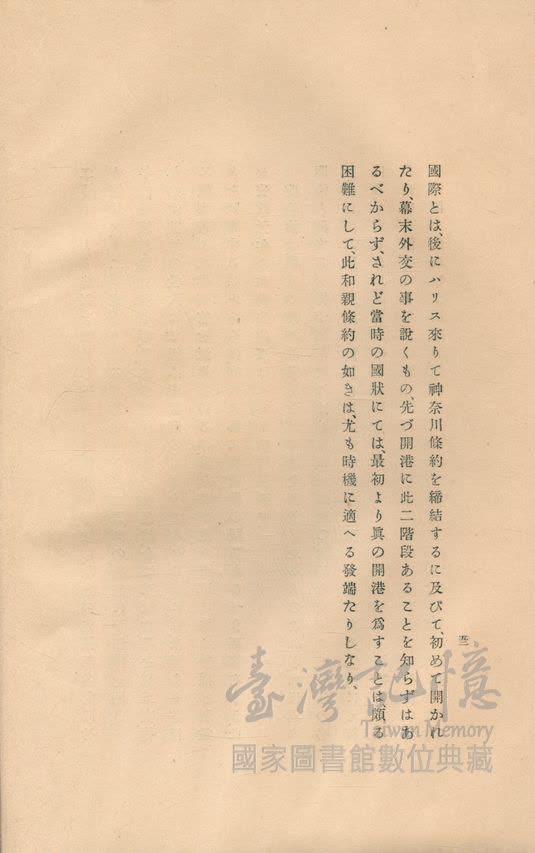 國際とは、後にハリス來りて神奈川條約を締結するに及びて、初めて開かれ
たり、幕末外交の事を說くもの、先づ開港に此二階段あることを知らずはあ
るべからず、されど當時の國狀にては、最初より眞の開港を爲すことは、頗る
困難にして、此和親條約の如きは、尤も時機に適へる發端たりしなり、
臺灣記憶
Taiwan Memory
國家圖書館數位典藏